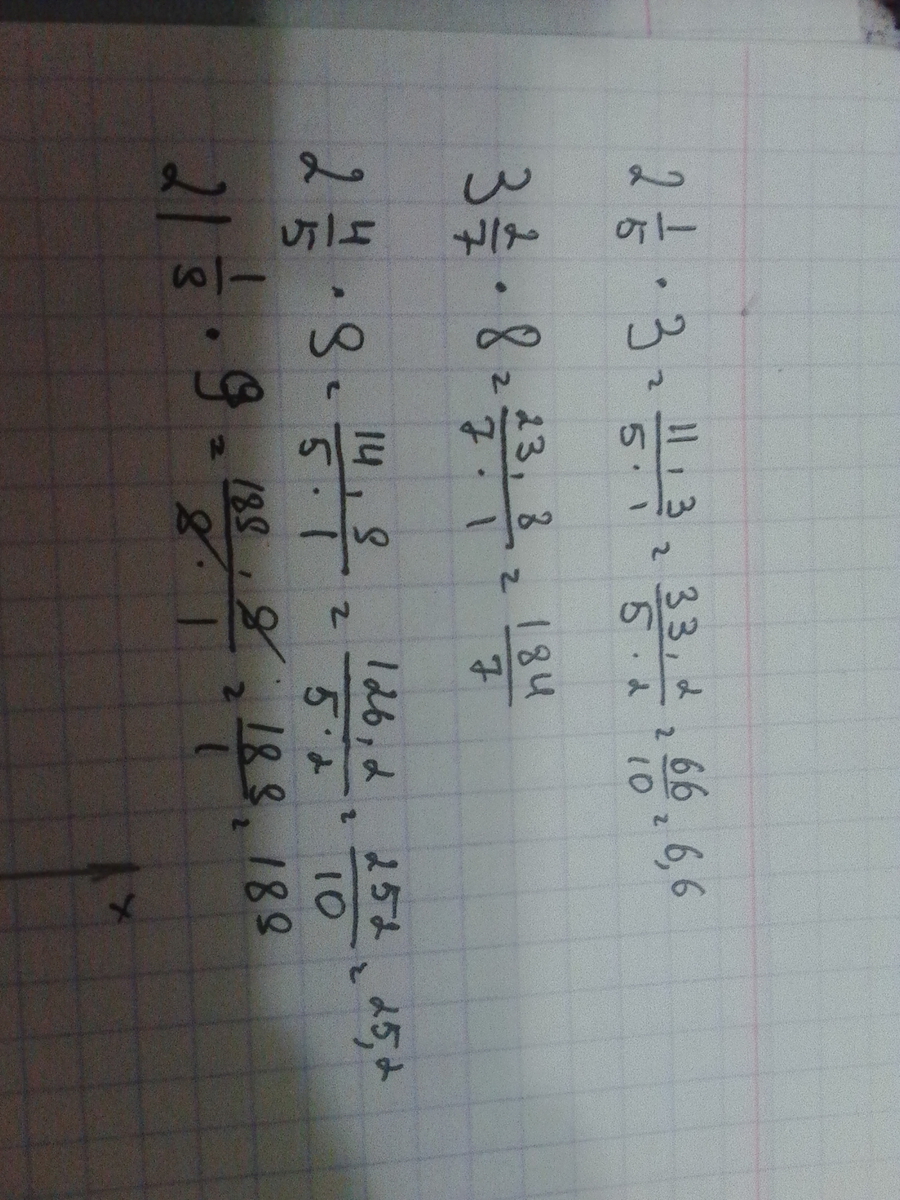 2 1/5 · 3 = (11 · 3)/(5 · 1) = (33 · 2)/(5 · 2) = 66/10 = 6,6
3 2/7 · 8 = (23 · 8)/(7 · 1) = 184/7
2 4/5 · 9 = (14 · 9)/(5 · 1) = (126 · 2)/(5 · 2) = 252/10 = 25,2
21 1/9 · 9 = (189 · 9)/(9 · 1) = 189/1 = 189
x